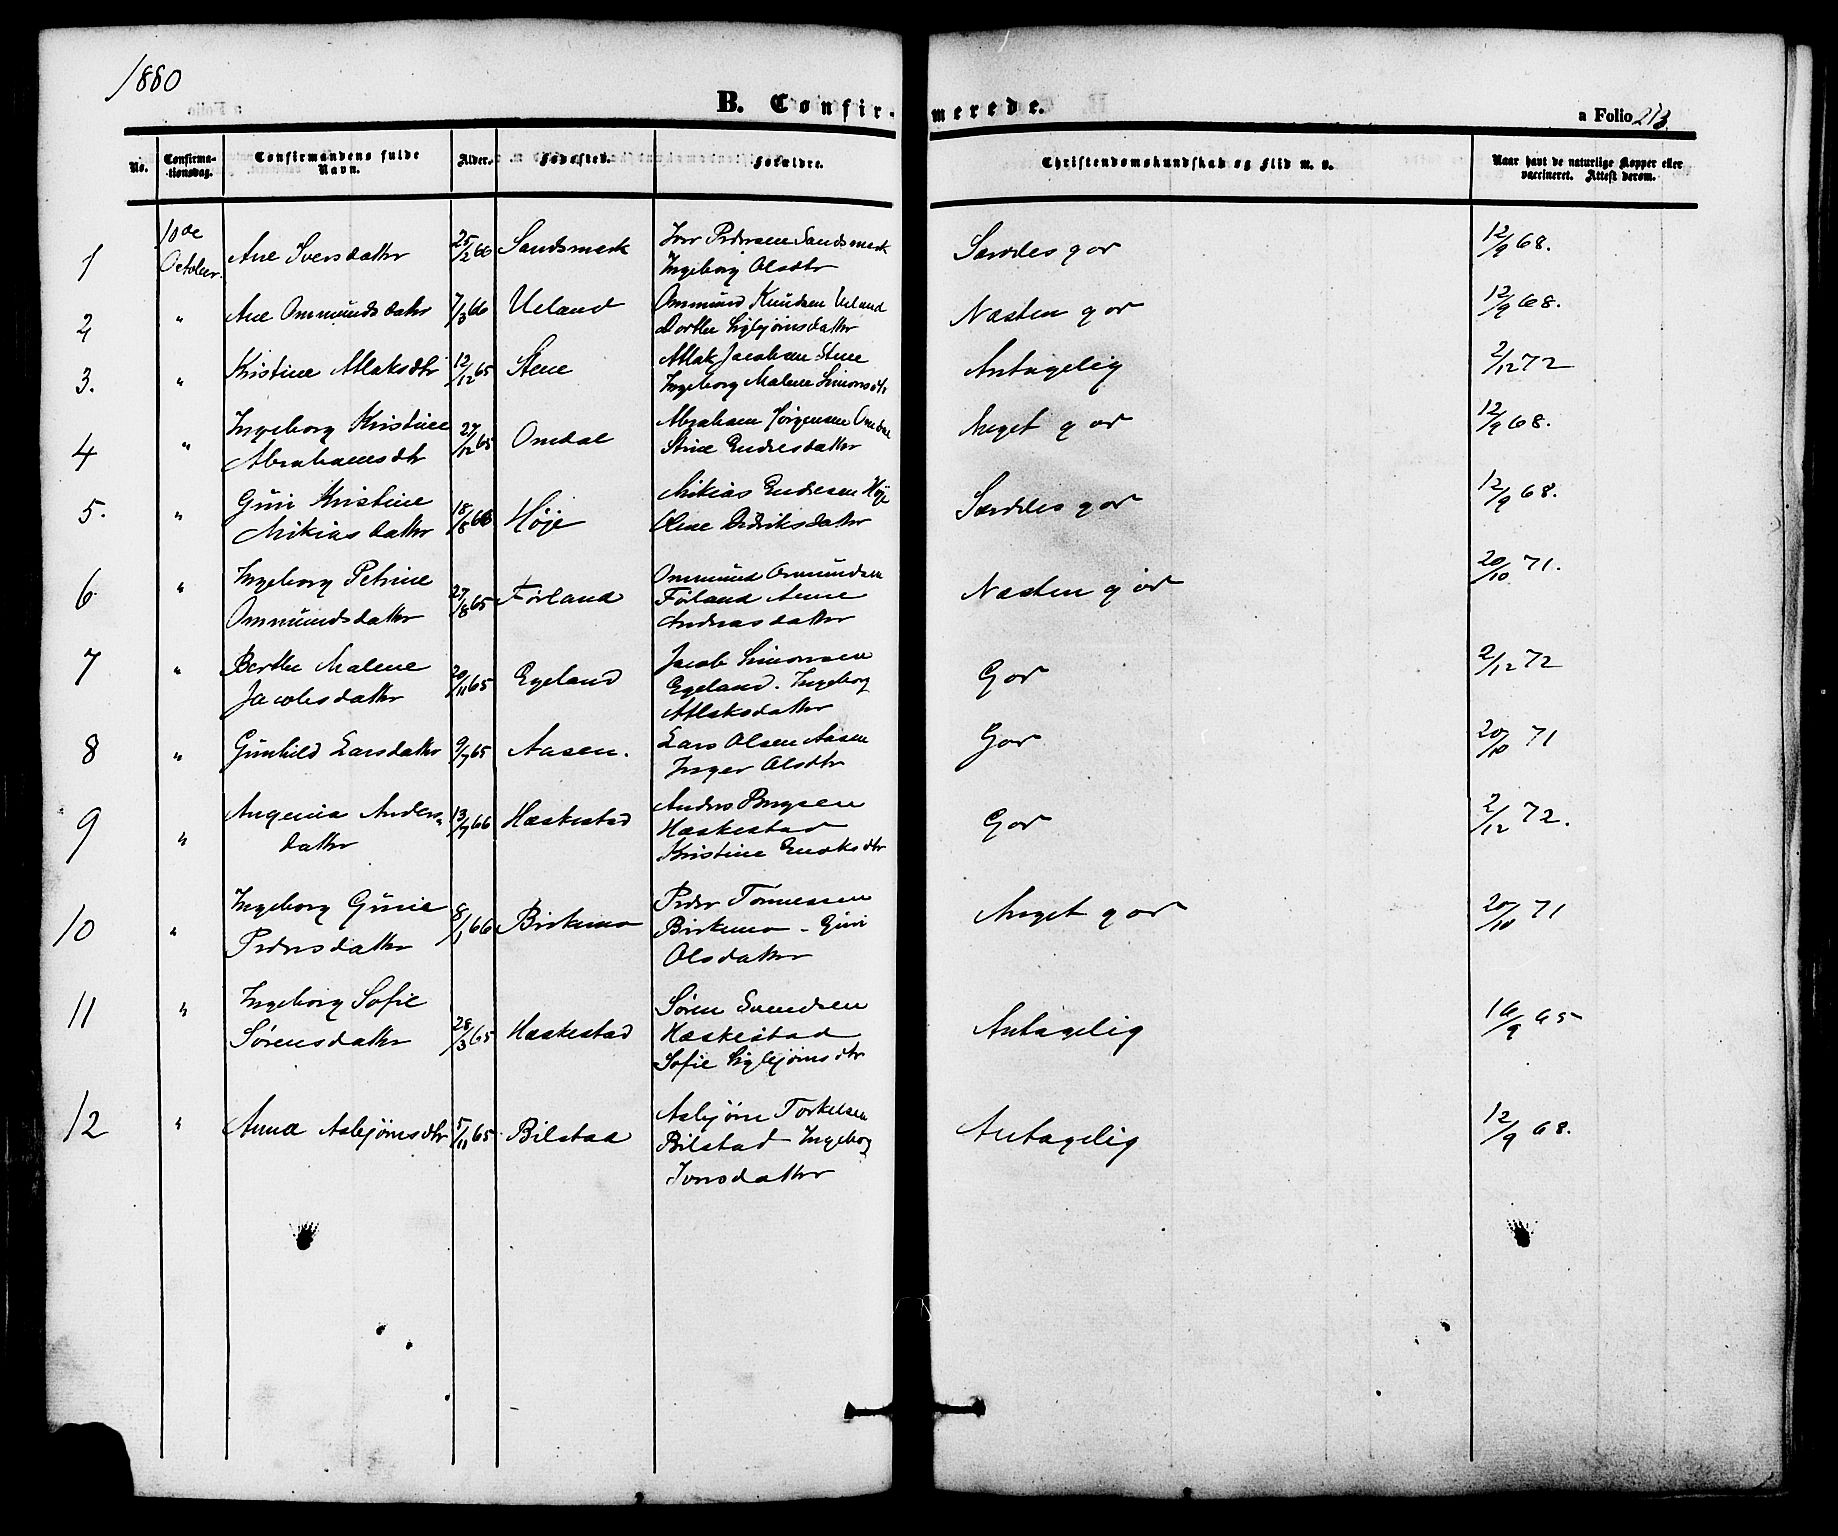 1880
B. Confirmerede.
a Folio 213.
No. Confirmationsdag. Confirmandens fulde Navn. Alder. Fødested. Forældre. Christendomskundskab og Flid m. v. Naar havt de naturlige Kopper eller vaccineret. Attest derom.
1 10de October. Ane Iversdatter 25/2 66 Sandsmark Iver Pedersen Sandsmark
Ingeborg Olsdtr Særdeles gor 12/9 68.
2 " Ane Ommundsdatter 7/3 66 Ueland Ommund Knudsen Ueland
Dorthe Sigbjørnsdatter Næsten gor 12/9 68.
3. " Kristine Atlaksdtr 12/12 65 Stene Atlak Jacobsen Stene
Ingeborg Malene Simonsdtr Antagelig 2/12 72
4 " Ingeborg Kristine
Abrahamsdtr 27/12 65 Omdal Abraham Jørgensen Omdal
Stine Endresdatter Meget gor 12/9 68.
5. " Guri Kristine
Mikiasdatter 18/8 66 Høje Mikias Endresen Høje
Olene Didriksdatter Særdeles gor 12/9 68.
6 " Ingeborg Petrine
Ommundsdatter 27/8 65 Førland Ommund Ommundsen
Føland Anne
Andreasdatter Næsten gor 20/10 71.
7 " Berthe Malene
Jacobsdatter 20/11 65 Egeland Jacob Simonsen
Egeland. Ingeborg
Atlaksdatter Gor 2/12 72
8 " Gunhild Larsdatter 9/7 65 Aasen. Lars Olsen Aasen
Inger Olsdtr Gor 20/10 71
9 " Angenia Anders-
datter 13/7 66 Hæskestad Anders
Hæskestad
Kristine Gor 2/12 72.
10 " Ingeborg Gurie
Pedersdatter 8/1 66 Birkemo Peder Tønnessen
Birkemo - Guri
Olsdatter Meget gor 20/10 71
11 " Ingeborg Sofie
Sørensdatter 28/3 65 Hæskestad Søren Svendsen
Hæskestad
Sofie Sigbjørnsdtr Antagelig 16/9 65
12 " Anna Asbjørnsdtr 5/11 65 Bilstad Asbjørn Torkelsen
Bilstad Ingeborg
Iversdatter Antagelig 12/9 68.